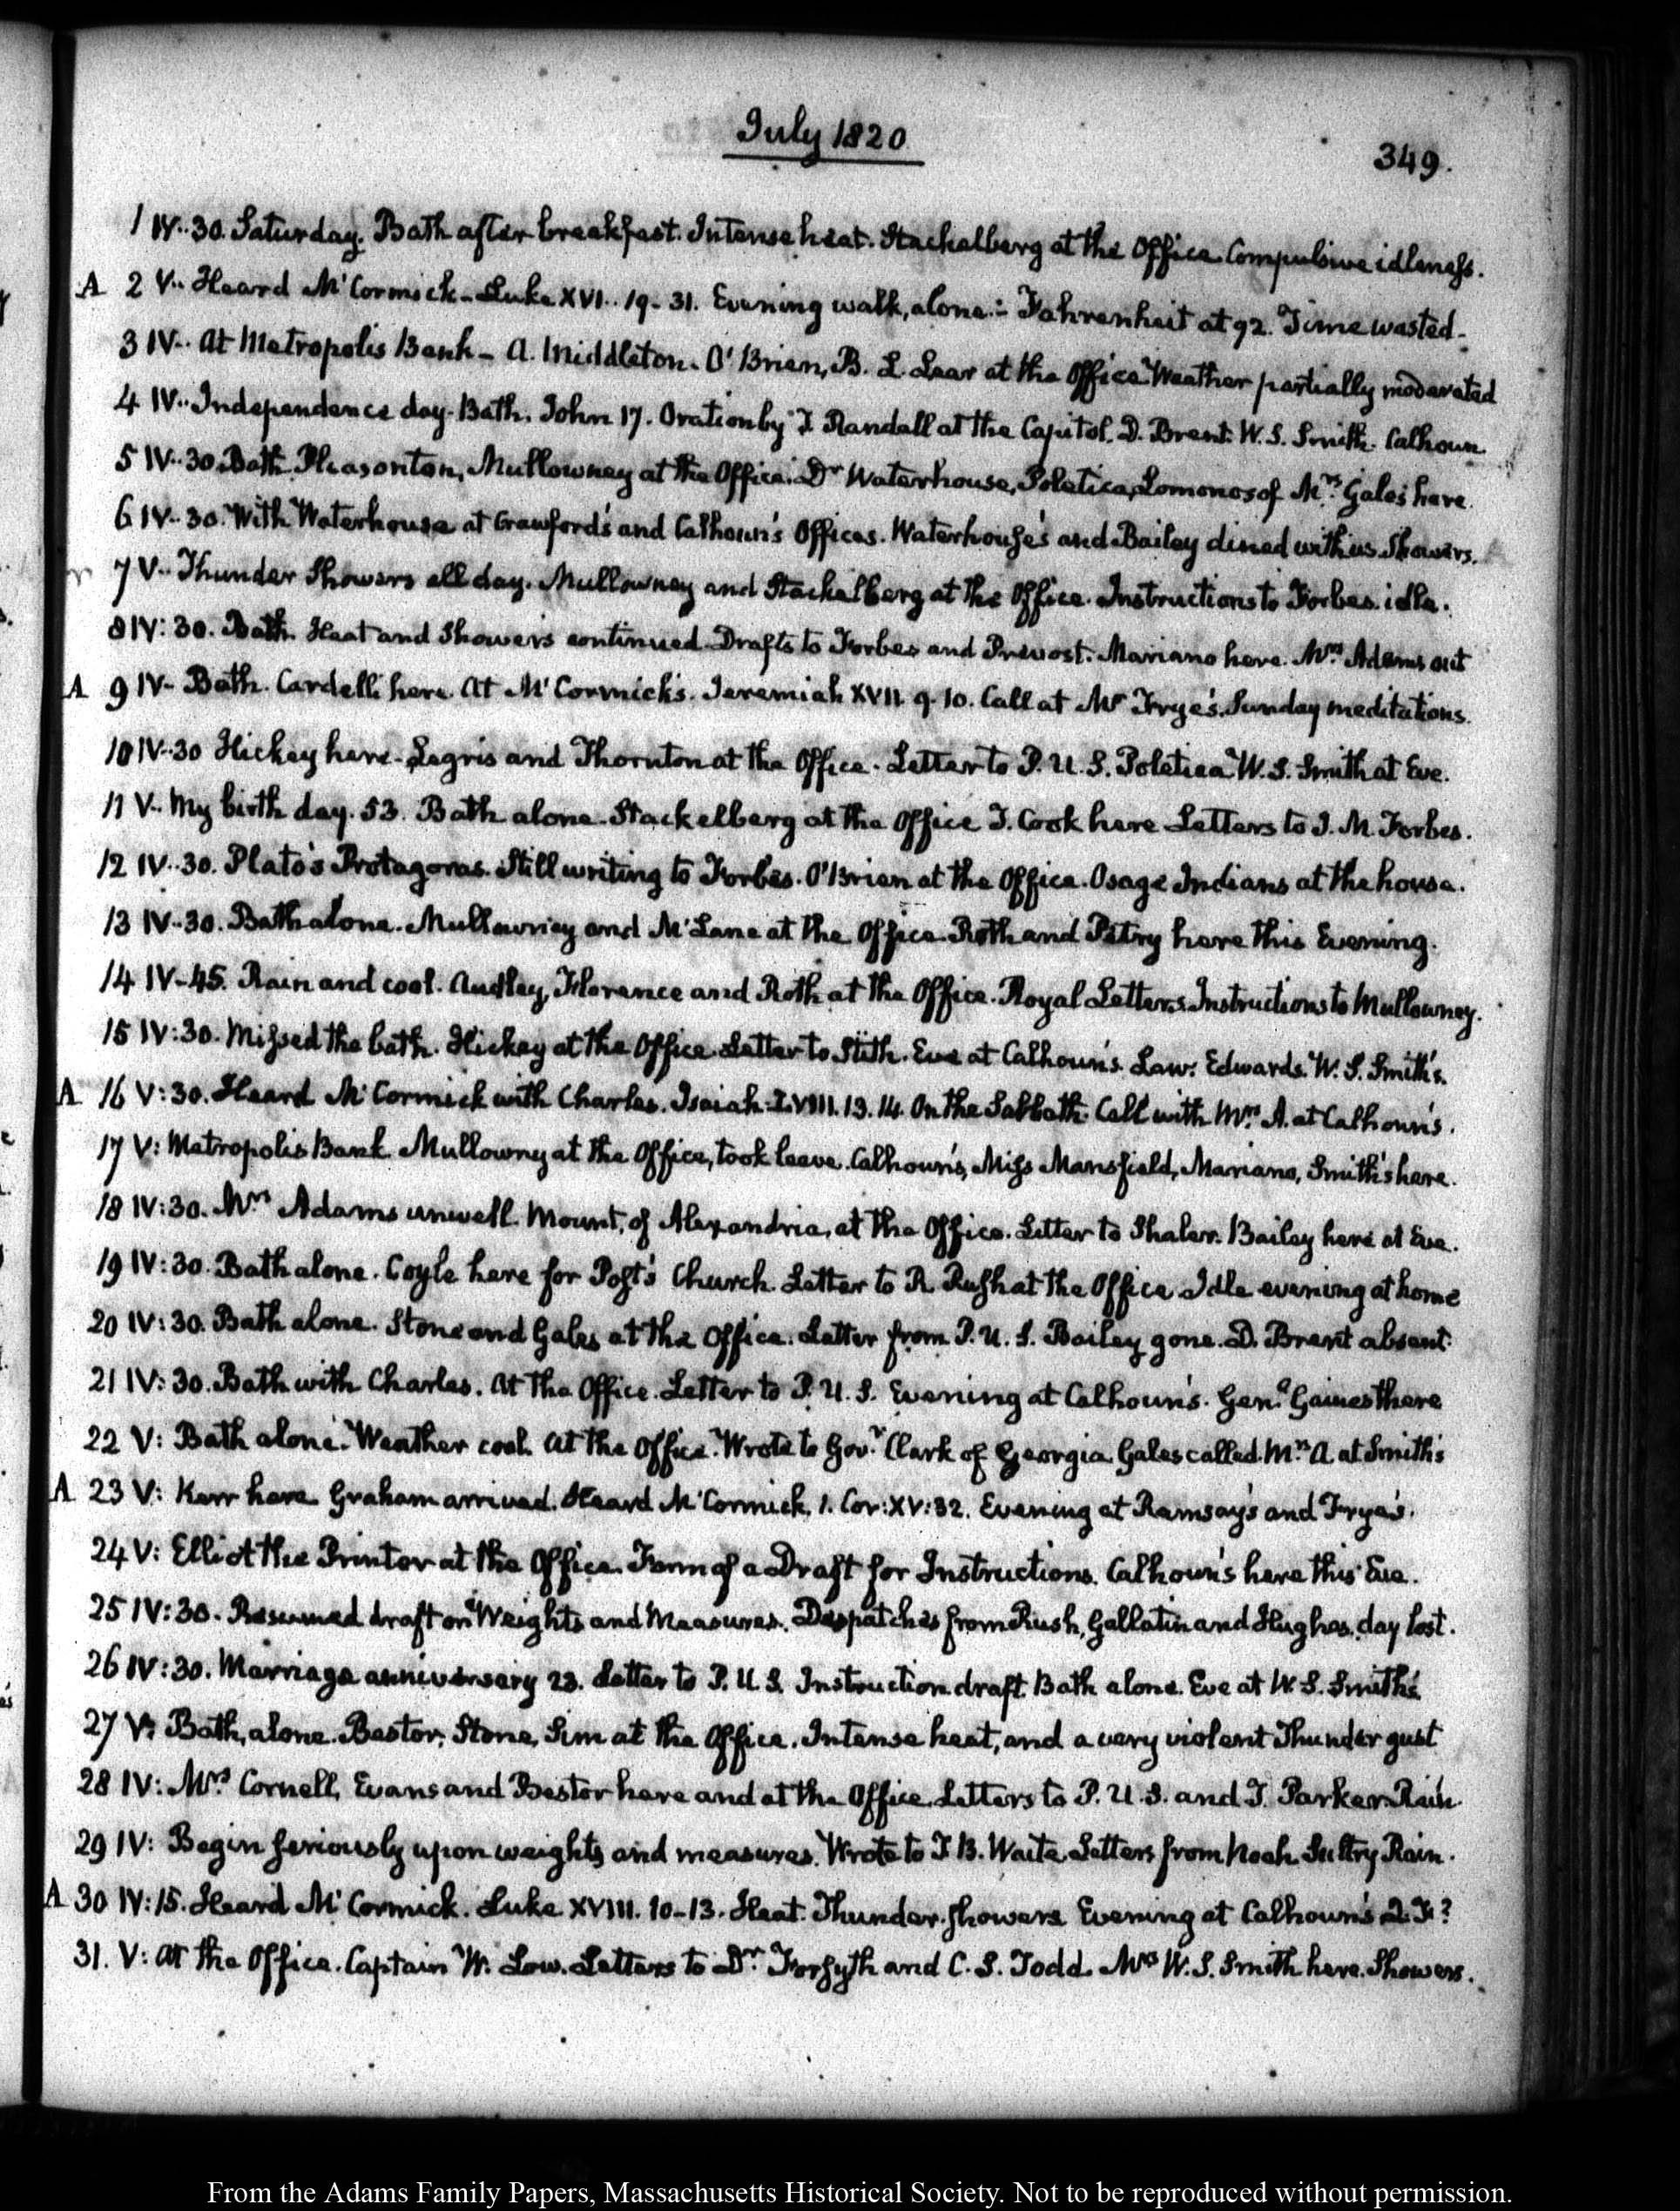 July 1820
349.
1 IV..30. Saturday. Bath after breakfast. Intense heat. Stackelberg at the Office. Compulsive idleness.
A 2 V.. Heard McCormick - Luke XVI.. 19-31. Evening walk, alone.- Fahrenheit at 92. Time wasted-
3 IV.. At Metropolis Bank - A. Middleton. O'Brien, B. L. Lear at the Office. Weather partially moderated
4 IV.. Independence day. Bath. John 17. Oration by J Randall at the Capitol. D. Brent. W. S. Smith. Calhoun
5 IV..30. Bath. Pleasonton, Mullowney at the Office. Dr Waterhouse, Poletica, Lomonosof Mrs Gales here.
6 IV..30. With Waterhouse at Crawford's and Calhoun's Offices. Waterhouse's and Bailey dined with us. Showers.
7 V.. Thunder Showers all day. Mullowney and Stackelberg at the Office. Instructions to Forbes. idle.
8 IV:30. Bath. Heat and Showers continued. Drafts to Forbes and Prevost. Mariano here. Mrs Adams out
A 9 IV- Bath. Cardelli here. At McCormick's. Jeremiah XVII. 9.10. Call at Mr Frye's. Sunday meditations.
10 IV..30 Hickey here. Legris and Thornton at the Office. Letter to P. U. S. Poletica W. S. Smith at Eve.
11 V.. My birth day. 53. Bath alone. Stackelberg at the Office J. Cook here Letters to J. M. Forbes.
12 IV..30. Plato's Protagoras. Still writing to Forbes. O'Brien at the Office. Osage Indians at the house.
13 IV..30. Bath alone. Mullowney and McLane at the Office. Roth and Petry here this Evening.
14 IV-45. Rain and cool. Audley, Florence and Roth at the Office. Royal Letters. Instructions to Mullowney.
15 IV:30. Missed the bath. Hickey at the Office. Letter to Stith. Eve at Calhoun's. Law. Edwards. W. S. Smith's.
A 16 V:30. Heard McCormick with Charles. Isaiah LVIII. 13. 14. On the Sabbath. Call with Mrs A. at Calhoun's.
17 V: Metropolis Bank. Mullowny at the Office, took leave. Calhoun's, Miss Mansfield, Mariano, Smith's here.
18 IV:30. Mrs Adams unwell. Mount, of Alexandria, at the Office. Letter to Shaler. Bailey here at Eve.
19 IV:30. Bath alone. Coyle here for Post's Church. Letter to R. Rush at the Office. Idle evening at home
20 IV:30. Bath alone. Stone and Gales at the Office. Letter from P. U. S. Bailey gone. D. Brent absent.
21 IV:30. Bath with Charles. At the Office. Letter to P. U. S. Evening at Calhoun's. Genl Gaines there
22 V: Bath alone. Weather cool. At the Office. Wrote to Govr Clark of Georgia. Gales called. Mrs A at Smith's
A 23 V: Kerr here. Graham arrived. Heard McCormick. 1. Cor:XV:32. Evening at Ramsay's and Frye's.
24 V: Elliot the Printer at the Office. Form of a Draft for Instructions. Calhoun's here this Eve.
25 IV:30. Resumed draft on Weights and Measures. Despatches from Rush, Gallatin and Hughes. day lost.
26 IV:30. Marriage anniversary 23. Letter to P. U. S. Instruction draft. Bath alone. Eve at W. S. Smith's
27 V: Bath, alone. Bestor, Stone, Sim at the Office. Intense heat, and a very violent Thunder gust
28 IV: Mrs Cornell, Evans and Bestor here and at the Office. Letters to P. U. S. and J. Parker. Rain.
29 IV: Begin seriously upon weights and measures. Wrote to T. B. Waite. Letters from Noah. Sultry Rain.
A 30 IV:15. Heard McCormick. Luke XVIII. 10-13. Heat. Thunder showers Evening at Calhoun's
31. V: At the Office. Captain W. Low. Letters to Dr Forsyth and C. S. Todd. Mrs W. S. Smith here. Showers.
From the Adams Family Papers, Massachusetts Historical Society. Not to be reproduced without permission.